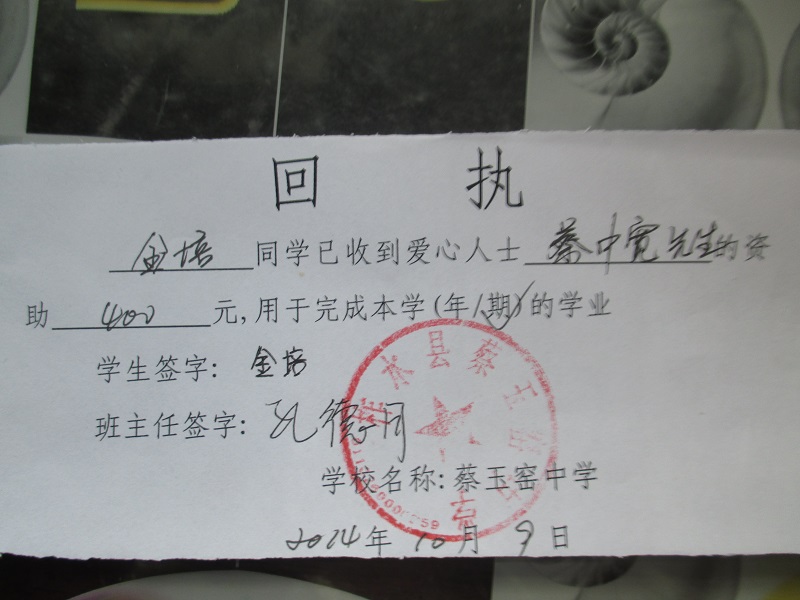 回 执
金培同学已收到爱心人士蔡中宽先生的资
助400元,用于完成本学(年/期)的学业
学生签字: 金培
班主任签字: 孔德
学校名称: 蔡玉窑中学
2014年10月9日
水县蔡玉